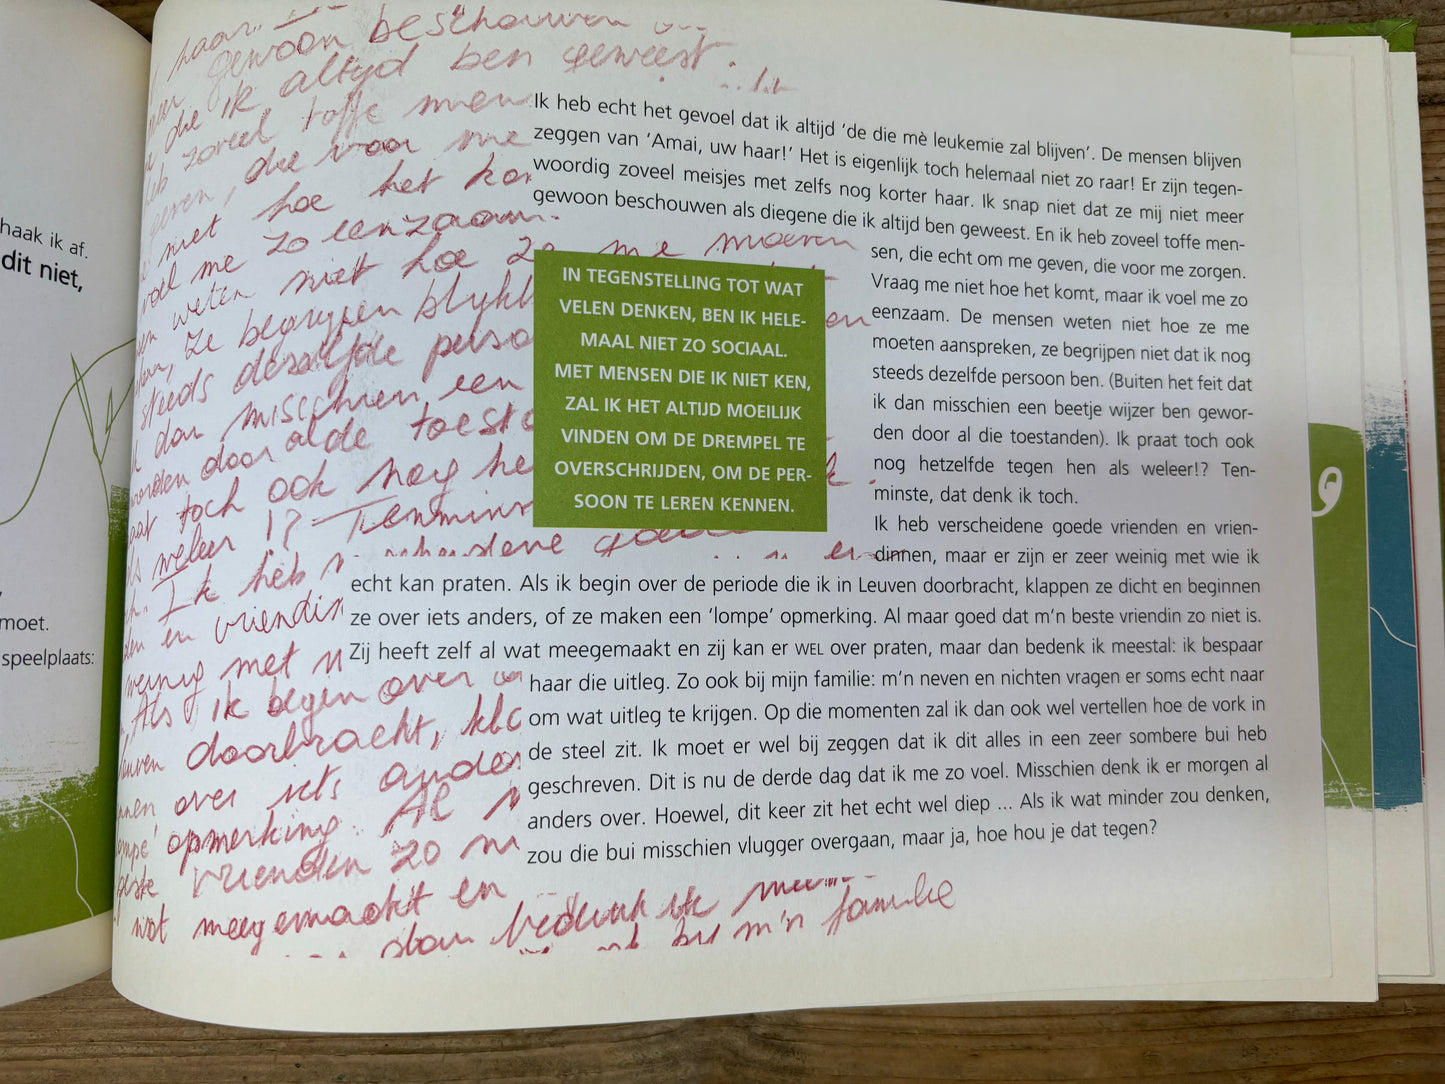 haak ik af.
dit niet,
moet.
speelplaats:
haar...
gewoon beschouwen
die ik altijd ben geweest.
zoveel toffe men
geven, die voor me
niet hoe het kom
voel me zo eenzaam.
weten niet hoe ze me moeten
ze begrijpen blijkb
steeds deselfde perso
dan misschien een
worden door al de toesta
toch ook nog he
als weleer !? Tenmins
Ik heb verscheidene goede
en vriendin
weinig met
Als ik begin over
Leuven doorbracht, kla
over iets ander
opmerking. Al
vrienden zo
wat meegemaakt en
dan bedenk ik meest
bij m'n familie
Ik heb echt het gevoel dat ik altijd ‘de die mè leukemie zal blijven’. De mensen blijven
zeggen van ‘Amai, uw haar!’ Het is eigenlijk toch helemaal niet zo raar! Er zijn tegen-
woordig zoveel meisjes met zelfs nog korter haar. Ik snap niet dat ze mij niet meer
gewoon beschouwen als diegene die ik altijd ben geweest. En ik heb zoveel toffe men-
sen, die echt om me geven, die voor me zorgen.
Vraag me niet hoe het komt, maar ik voel me zo
eenzaam. De mensen weten niet hoe ze me
moeten aanspreken, ze begrijpen niet dat ik nog
steeds dezelfde persoon ben. (Buiten het feit dat
ik dan misschien een beetje wijzer ben gewor-
den door al die toestanden). Ik praat toch ook
nog hetzelfde tegen hen als weleer!? Ten-
minste, dat denk ik toch.
Ik heb verscheidene goede vrienden en vrien-
dinnen, maar er zijn er zeer weinig met wie ik
echt kan praten. Als ik begin over de periode die ik in Leuven doorbracht, klappen ze dicht en beginnen
ze over iets anders, of ze maken een ‘lompe’ opmerking. Al maar goed dat m’n beste vriendin zo niet is.
Zij heeft zelf al wat meegemaakt en zij kan er WEL over praten, maar dan bedenk ik meestal: ik bespaar
haar die uitleg. Zo ook bij mijn familie: m’n neven en nichten vragen er soms echt naar
om wat uitleg te krijgen. Op die momenten zal ik dan ook wel vertellen hoe de vork in
de steel zit. Ik moet er wel bij zeggen dat ik dit alles in een zeer sombere bui heb
geschreven. Dit is nu de derde dag dat ik me zo voel. Misschien denk ik er morgen al
anders over. Hoewel, dit keer zit het echt wel diep ... Als ik wat minder zou denken,
zou die bui misschien vlugger overgaan, maar ja, hoe hou je dat tegen?
IN TEGENSTELLING TOT WAT
VELEN DENKEN, BEN IK HELE-
MAAL NIET ZO SOCIAAL.
MET MENSEN DIE IK NIET KEN,
ZAL IK HET ALTIJD MOEILIJK
VINDEN OM DE DREMPEL TE
OVERSCHRIJDEN, OM DE PER-
SOON TE LEREN KENNEN.